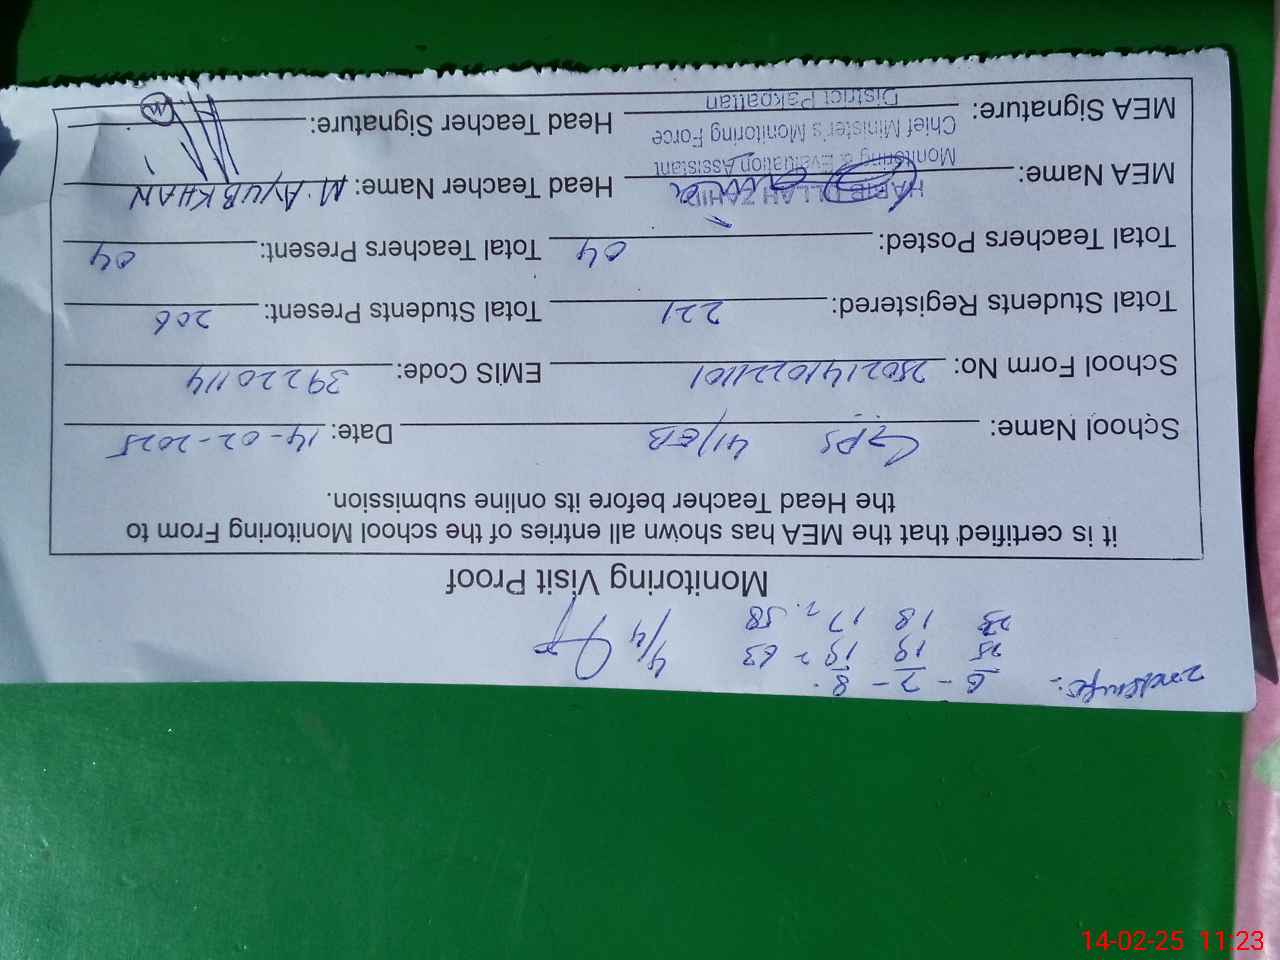 2nd shift: 6 - 7 - 8
25 19 19 = 63
23 18 17 = 58 4/4
Monitoring Visit Proof
it is certified that the MEA has shown all entries of the school Monitoring From to
the Head Teacher before its online submission.
School Name: GPS 41/EB Date: 14-02-2025
School Form No: 25021410221101 EMIS Code: 39220114
Total Students Registered: 221 Total Students Present: 206
Total Teachers Posted: 04 Total Teachers Present: 04
HABIB ULLAH ZAHID
MEA Name: Head Teacher Name: M. AYUB KHAN
Monitoring & Evaluation Assistant
Chief Minister's Monitoring Force
MEA Signature: Head Teacher Signature:
District Pakpattan
14-02-25 11:23